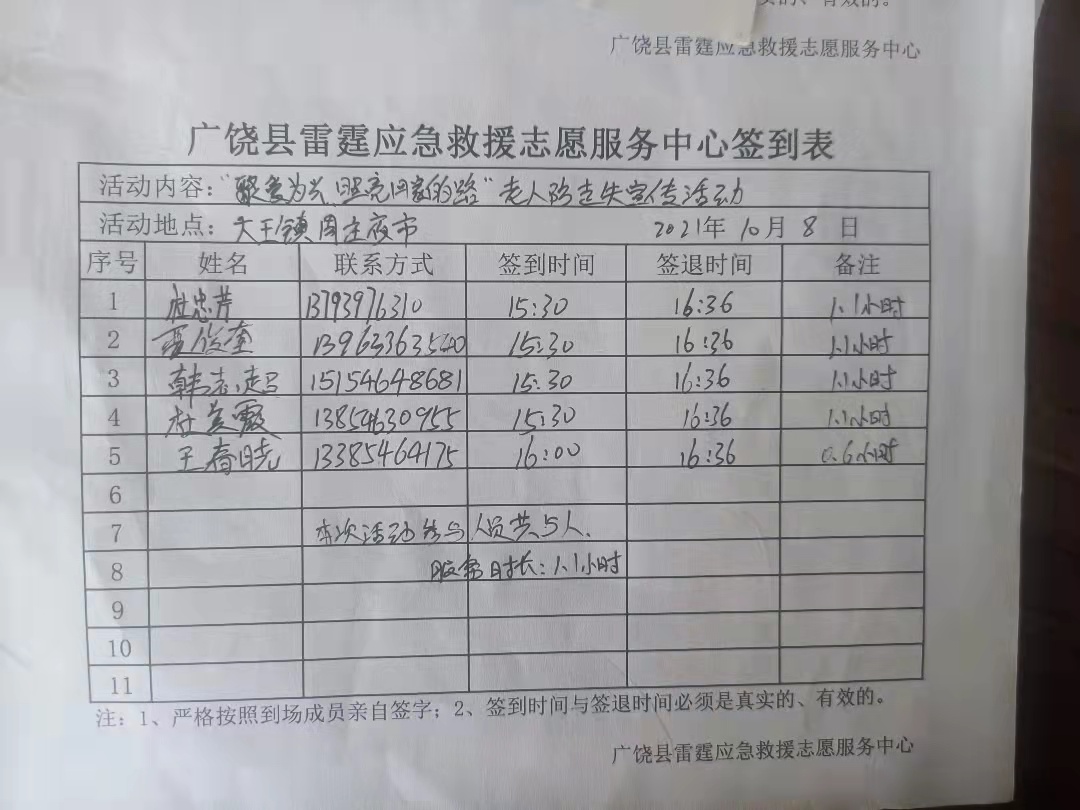 的、有效的。
广饶县雷霆应急救援志愿服务中心
广饶县雷霆应急救援志愿服务中心签到表
活动内容："聚爱为光 照亮回家的路"老人防走失宣传活动
活动地点：大王镇周庄夜市 2021年 10月 8 日
序号 姓名 联系方式 签到时间 签退时间 备注
1 杜忠芳 13793976310 15:30 16:36 1.1小时
2 俊奎 15:30 16:36 1.1小时
3 韩志超 15154648681 15:30 16:36 1.1小时
4 杜美霞 13854630955 15:30 16:36 1.1小时
5 王春晓 13385464175 16:00 16:36 0.6小时
6
7 本次活动参与人员共5人.
8 服务时长：1.1小时
9
10
11
注：1、严格按照到场成员亲自签字；2、签到时间与签退时间必须是真实的、有效的。
广饶县雷霆应急救援志愿服务中心